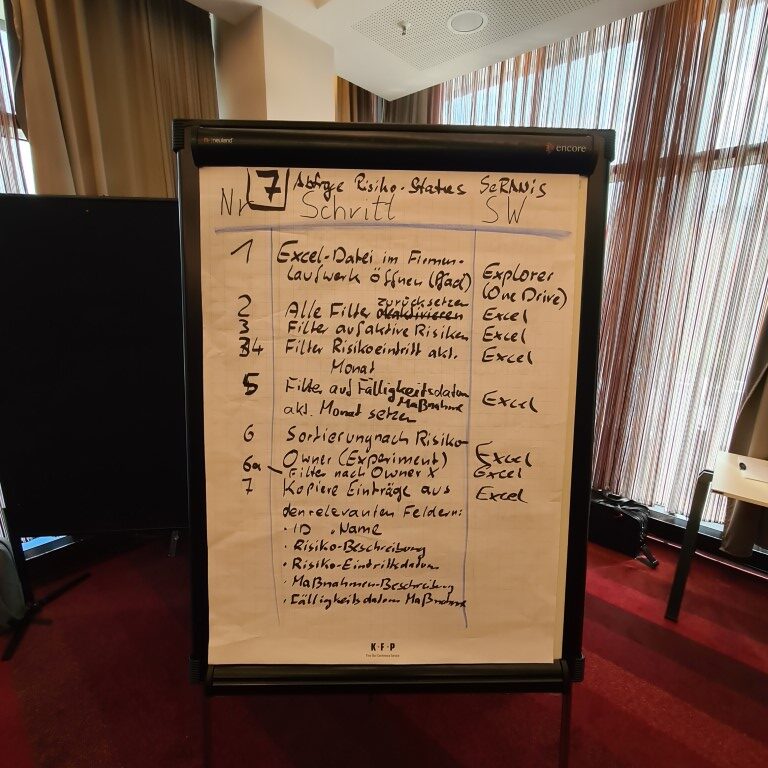 neuland
encore
7 Abfrage Risiko-Status SeRANIS
Nr Schritt SW
1 Excel-Datei im Firmen-
laufwerk öffnen (Pfad) Explorer
(One Drive)
zurücksetzen
2 Alle Filter deaktivieren Excel
3 Filter auf aktive Risiken Excel
34 Filter Risikoeintritt akt. Excel
Monat
5 Filter auf Fälligkeitsdatum
Maßnahme Excel
akt. Monat setzen
6 Sortierung nach Risiko-
Owner (Experiment) Excel
6a Filter nach Owner X Excel
7 Kopiere Einträge aus Excel
den relevanten Feldern:
· ID · Name
· Risiko-Beschreibung
· Risiko-Eintrittsdatum
· Maßnahmen-Beschreibung
· Fälligkeitsdatum Maßnahme
K·F·P